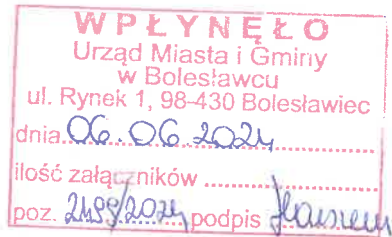 WPŁYNĘŁO
Urząd Miasta i Gminy
w Bolesławcu
ul. Rynek 1, 98-430 Bolesławiec
dnia 06.06.2024
ilość załączników ..............
poz. 2499/2024 podpis